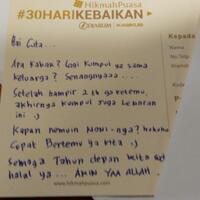 HikmahPuasa
#30HARIKEBAIKAN
Hai Cuta...
Apa Kabar? Lagi Kumpul ya sama
keluarga? Senangnyaaa...
Setelah hampir 2 th ga ketemu,
akhirnya kumpul juga Lebaran
ini :)
Kapan nemuin Noni-nya? hehehe
Cepat Bertemu ya kita :)
Semoga Tahun depan kita
halal ya ... AMIN YAA ALLAH.
www.hikmahpuasa.com
Kepada
Nama
No.Telp
Alamat